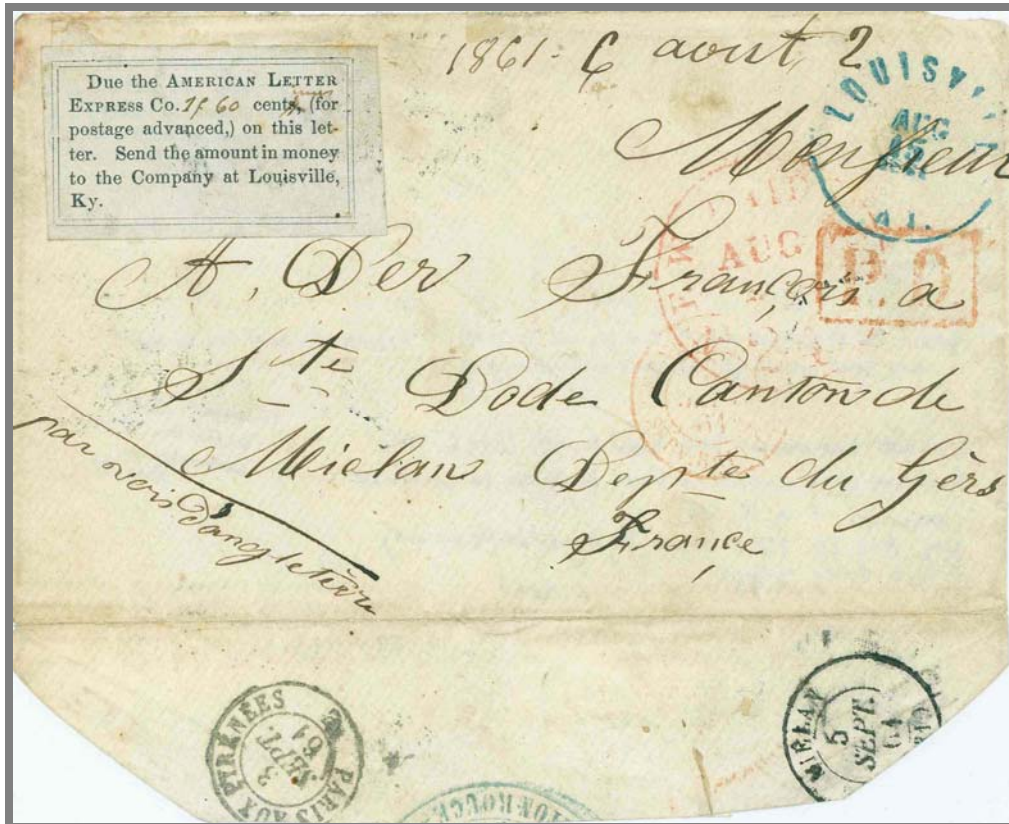 1861. 6 aout 2
Due the AMERICAN LETTER
EXPRESS Co. 1f 60 cents, (for
postage advanced,) on this let-
ter. Send the amount in money
to the Company at Louisville,
Ky.
LOUISV
AUG
Monsieur
PAID
AUG
P.D
A, Der François a
Ste Dode Canton de
Mielan Depte du Gèrs
France
par voir D'angletèrre
PARIS AUX PYRÉNÉES
3
SEPT.
61
MIELAN
5
SEPT.
61
BATON-ROUGE